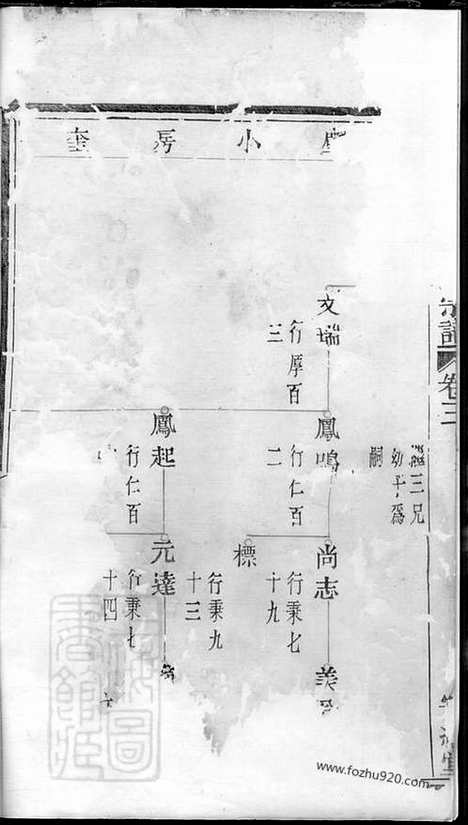 小房奎
卷三
繼三兄
幼子爲
嗣
文瑞
行厚百
三
鳳鳴
行仁百
二
鳳起
行仁百
尚志
行秉七
十九
標
行秉九
十三
元達
行秉七
十四
美
www.fozhu920.com